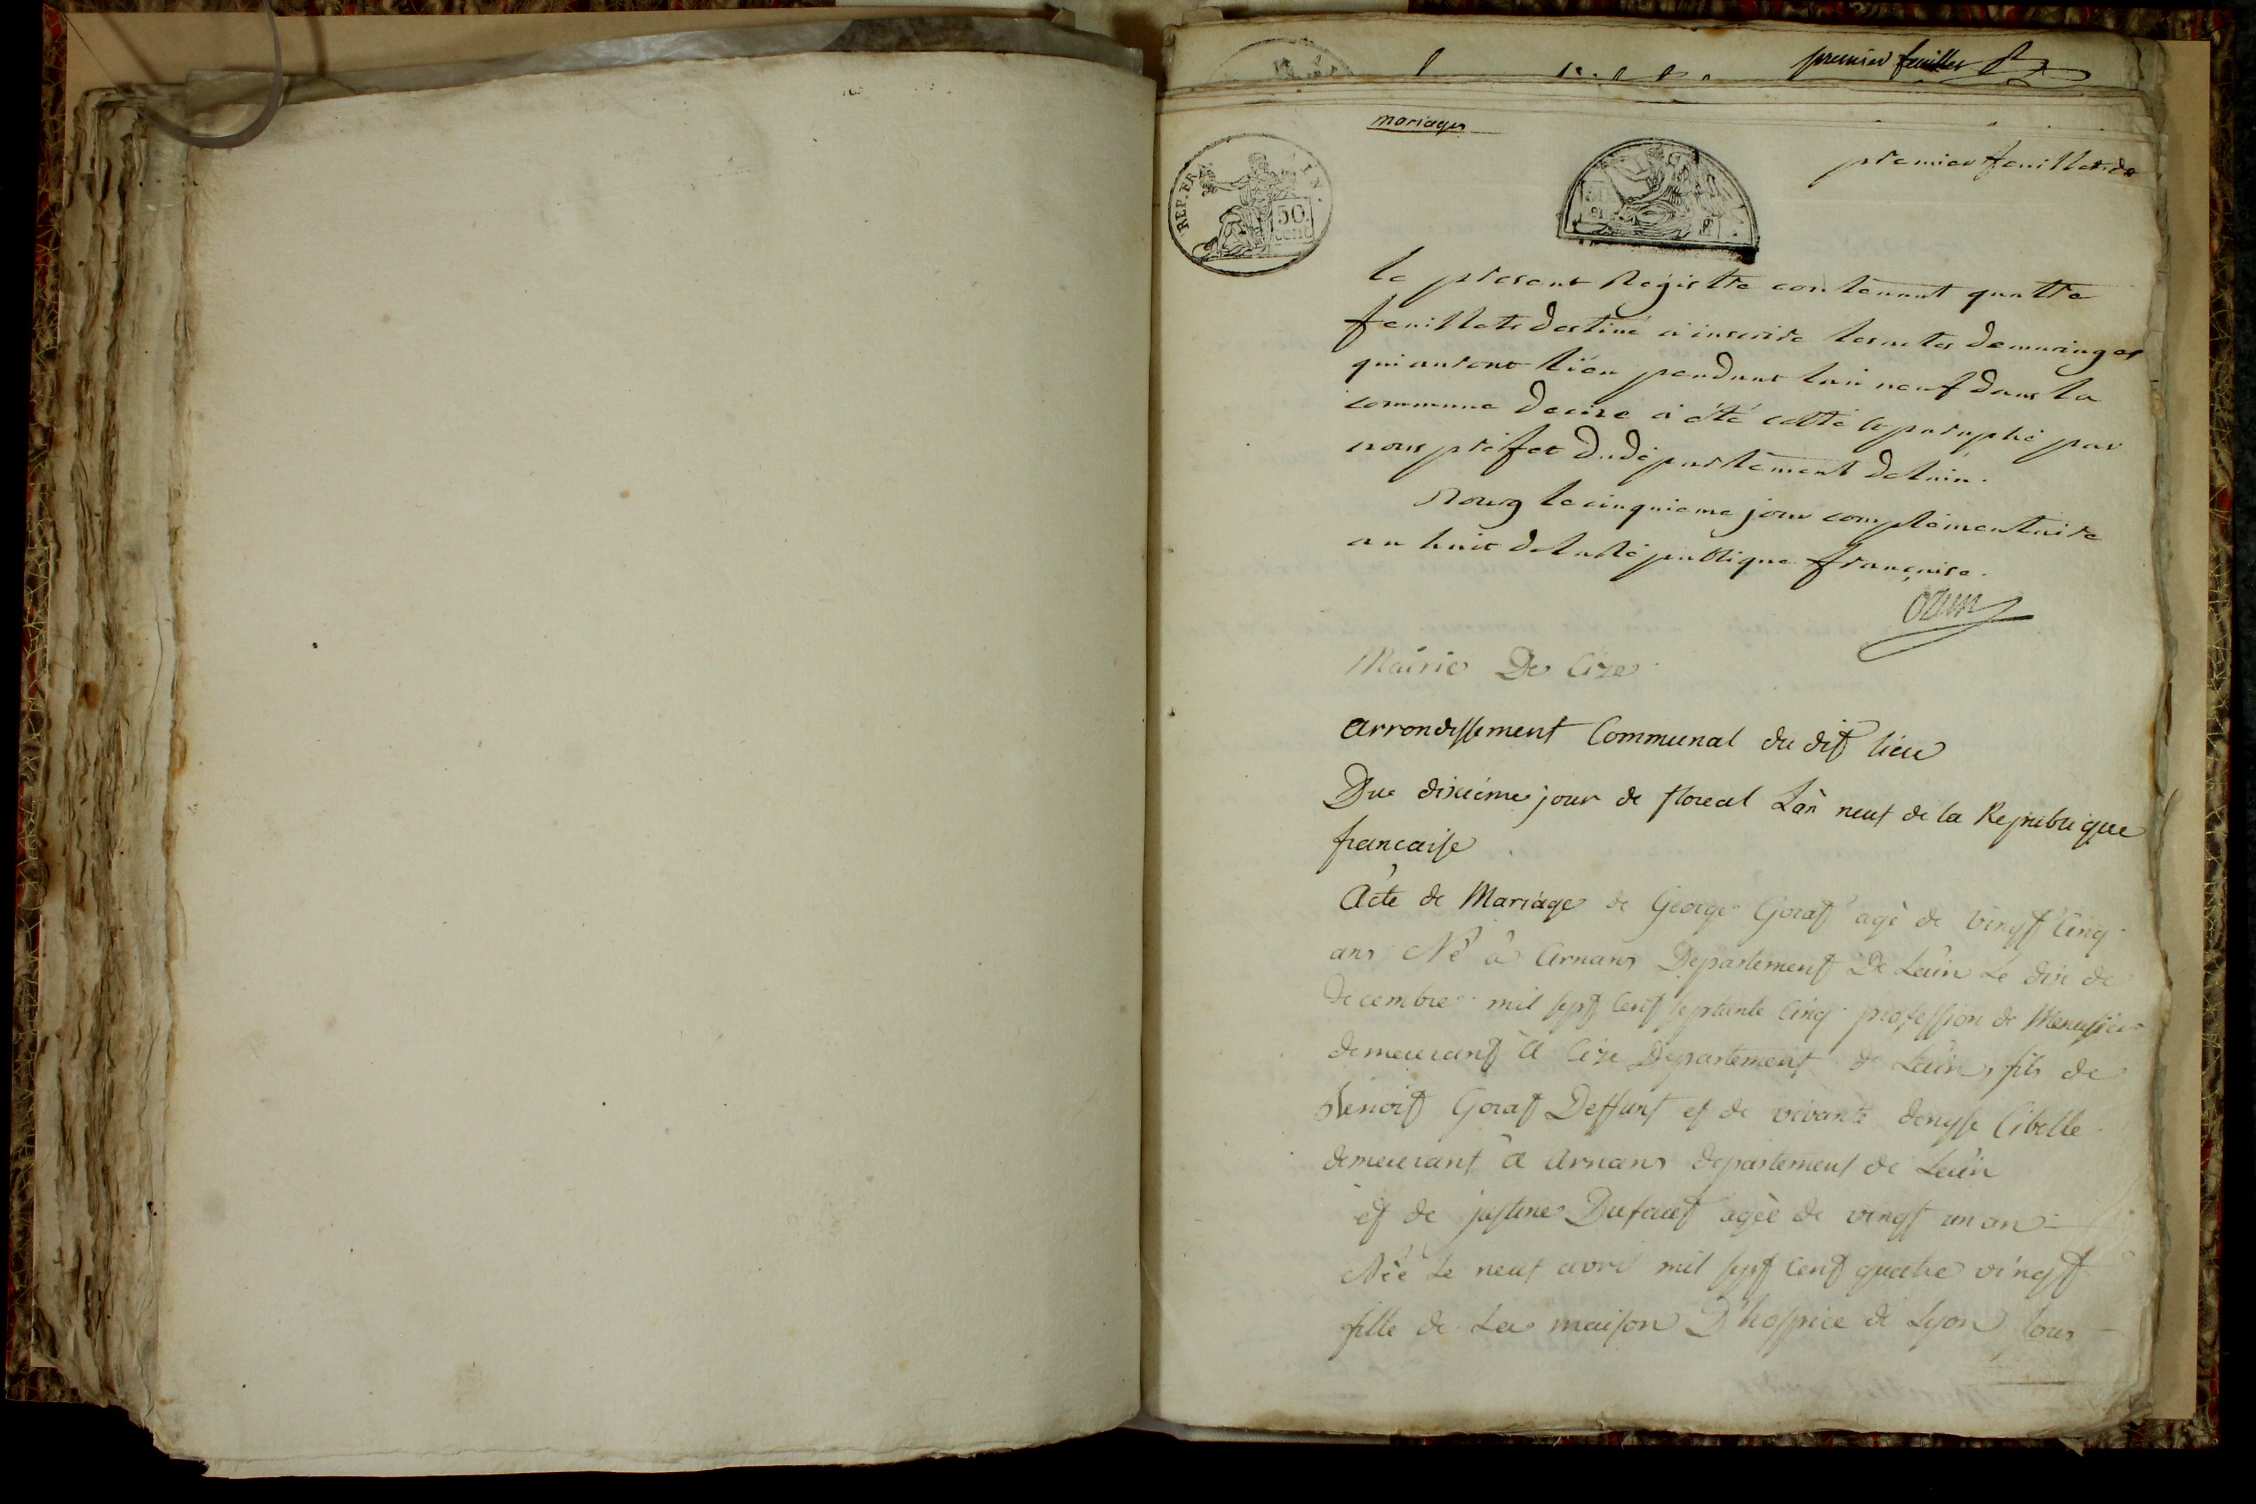 premier feuillet
mariages
premier feuillet
REP. FRA
50
CENT
le present Registre contenant quattre
feuillets destiné à inscrire les actes de mariages
qui auront lieu pendant l'an neuf dans la
commune de cize à été cotté et paraphé par
nous préfet du département de l'ain.
Bourg le cinquieme jour complémentaire
an huit de la République française.
Ozun
Mairie De Cize
arrondissement Communal du dit lieu
Du dixième jour de floreal L'an neuf de la Republique
française
Acte de Mariage de George Goraf agé de vingt Cinq
ans Né à Arnans Departement De Lain Le dix de
decembre mil sept Cent septante Cinq profession de Menusier
demeurant à Cize Departement de Lain, fils de
Benoit Goraf Deffunt et de vivante denyse Cibelle
demeurant à Arnans departement de Lain
et de justine Dufauet agée de vingt un an
Née le neuf avril mil sept Cent quatre vingt
fille de La maison D'hospice de Lyon sous